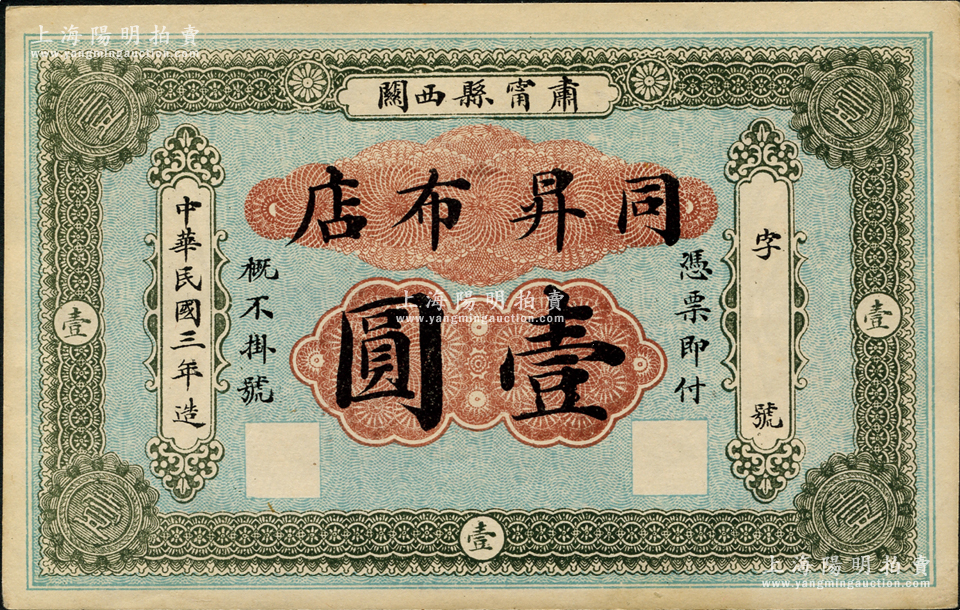 上海陽明拍賣
www.yangmingauction.com
肅甯縣西關
同昇布店
憑票即付
字 號
壹圓
概不掛號
中華民國三年造
壹
壹
壹
上海陽明拍賣
www.yangmingauction.com
上海陽明拍賣
www.yangmingauction.com